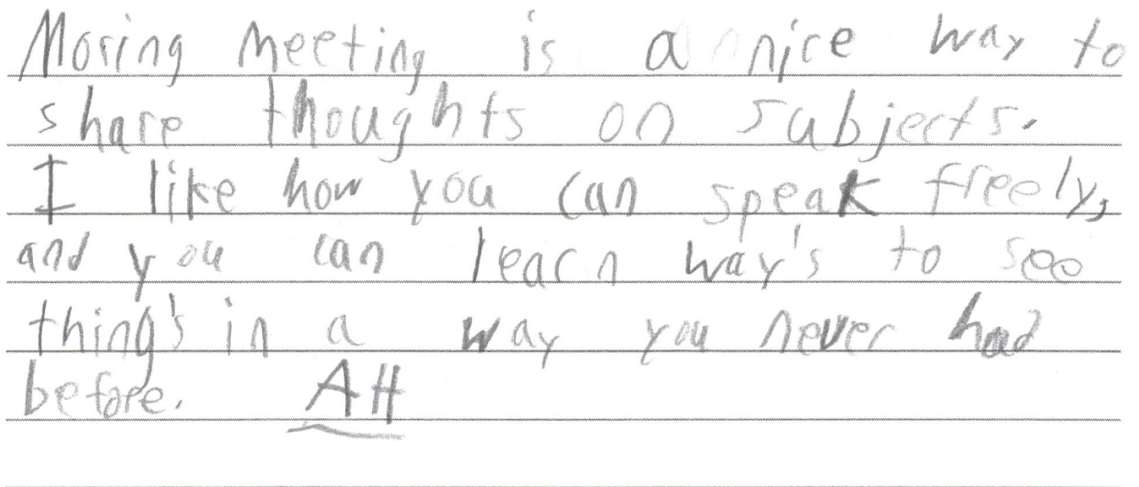 Moring meeting is a nice way to
share thoughts on subjects.
I like how you can speak freely,
and you can learn way's to see
thing's in a way you never had
before. AH